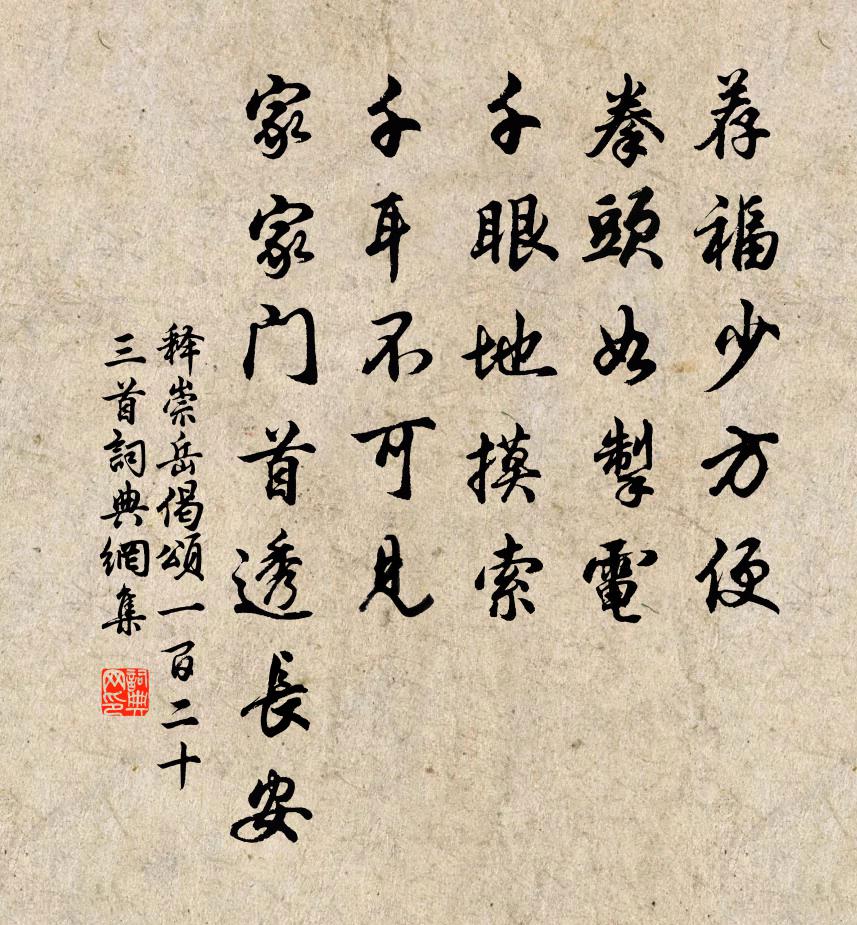 荐福少方便
拳頭如掣電
千眼地摸索
千耳不可見
家家門首透長安
释崇岳偈頌一百二十
三首詞典網集
詞典网印